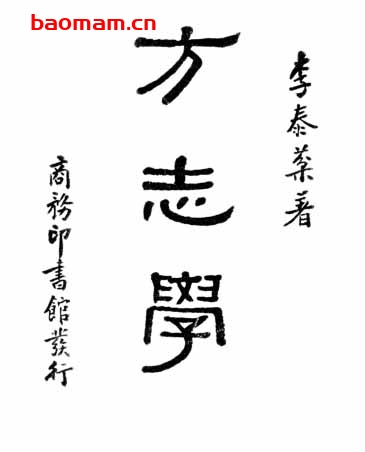 baomam.cn
李泰棻著
方志學
商務印書館發行